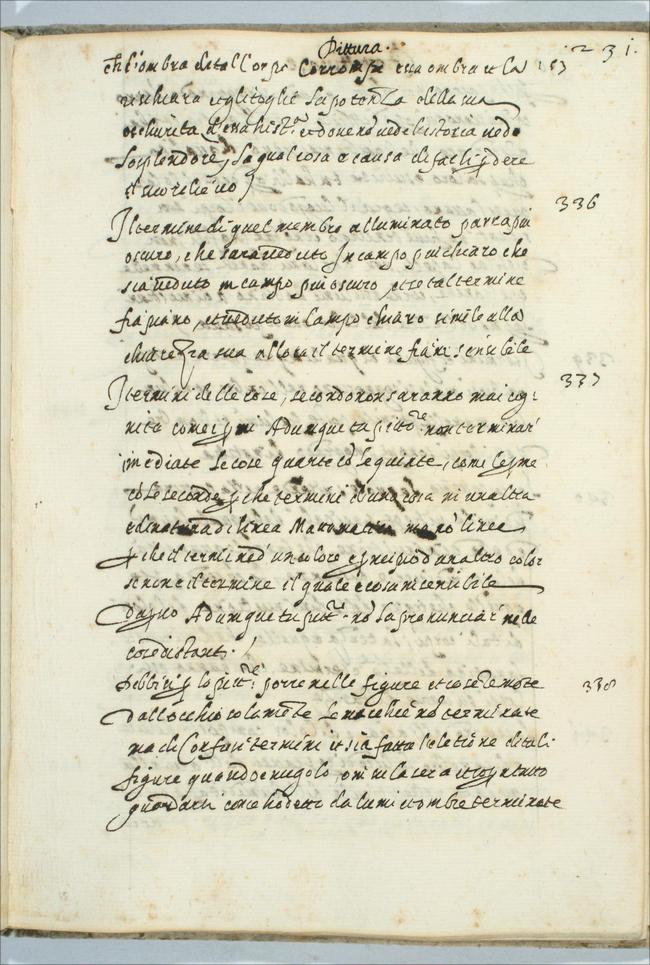 Pittura. 231.
ch l'ombra di tal Corpo Corrompe essa ombra et la 153
rischiara et gli toglie la potenza della sua
oschurita
lo splendore, la qual cosa e causa di far li pdere
il suo rilieuo
336
Il termine di quel membro alluminato parra piu
oscuro, che sara ueduto In campo piu chiaro che
sia ueduto in campo piu oscuro, et se tal termine
fia piano, et ueduto in Campo chiaro simile alla
chiarezza sua allora il termine fia insensibile
337
I termini delle cose, seconde non saranno mai cog
niti come i pmi Adunque tu pitto.re non terminar
imediate le cose quarte cō le quinte, come le pme
cō le seconde p che termini d'una cosa in un altra
è di natura di linea Matematica ma nō linea
p che il termine d'un colore e pncipio d'un altro color
se non e il termine il quale e cosa insensibile
Adunque tu pitt.re nō la pronunciar nelle
cose distanti.
338
Debbiasi p lo pitt.re porre nelle figure et cose remote
Dall'occhio solamēte le macchie nō terminate
ma di Confusi termini et sia fatta l'eletione di tali
figure quando e nugolo, o in su la sera
guardarsi come ho detto da lumi et ombre terminate